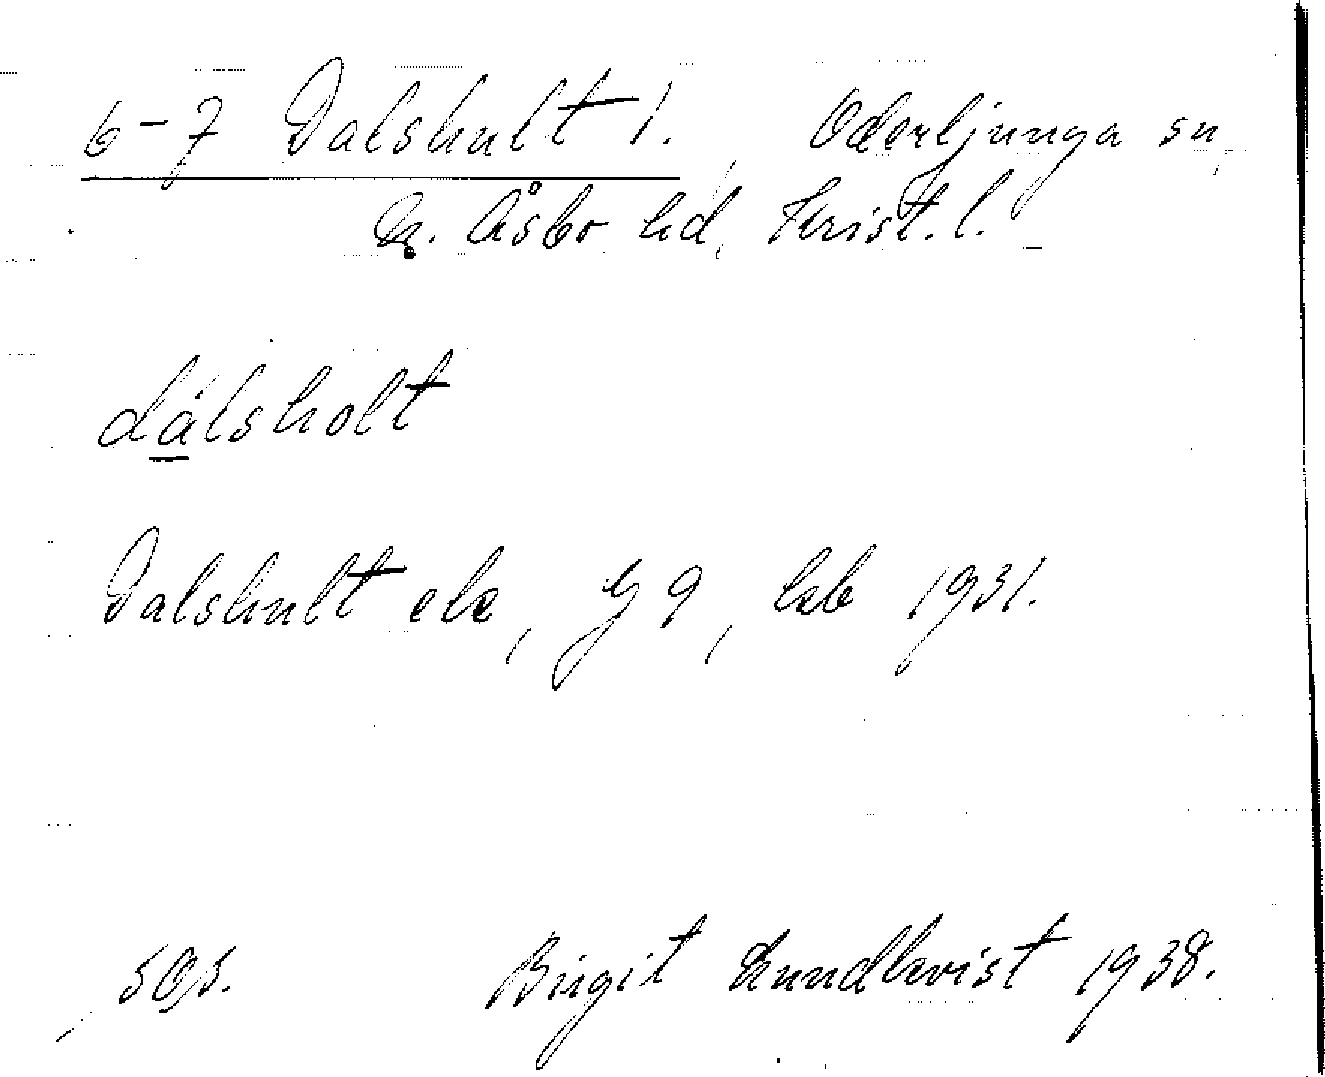 6-7 Dalshult 1., Oderljunga sn,
N. Åsbo hd, Krist. l.
dálsholt
Dalshult ek, G 9, kb 1931.
Birgit Lundkvist 1938.